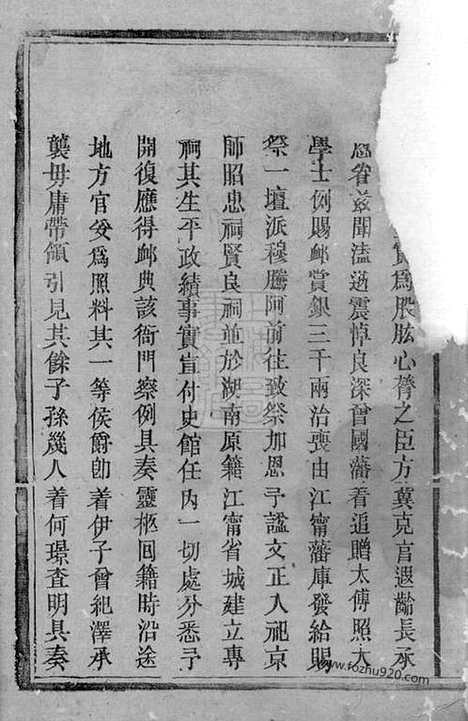 實爲股肱心膂之臣方冀克享遐齡長承
恩眷茲聞溘逝震悼良深曾國藩着追贈太傅照大
學士例賜卹賞銀三千兩治喪由江甯藩庫發給賜
祭一壇派穆騰阿前往致祭加恩予諡文正入祀京
師昭忠祠賢良祠並於湖南原籍江甯省城建立專
祠其生平政績事實宣付史館任內一切處分悉予
開復應得卹典該衙門察例具奏靈柩回籍時沿途
地方官妥爲照料其一等侯爵卽着伊子曾紀澤承
襲毋庸帶領引見其餘子孫幾人着何璟查明具奏
www.fozhu920.com